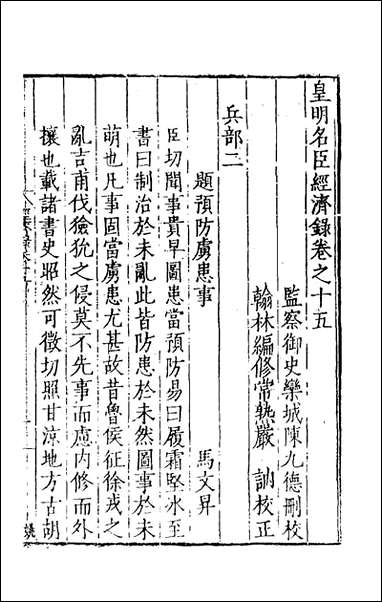 皇明名臣經濟錄卷之十五
監察御史欒城陳九德刪校
翰林編修常熟嚴 訥校正
兵部二
題預防虜患事 馬文昇
臣切聞事貴早圖患當預防易曰履霜堅冰至
書曰制治於未亂此皆防患於未然圖事於未
萌也凡事固當虜患尤甚故昔魯侯征徐戎之
亂吉甫伐獫狁之侵莫不先事而慮内修而外
攘也載諸書史昭然可徵切照甘涼地方古胡